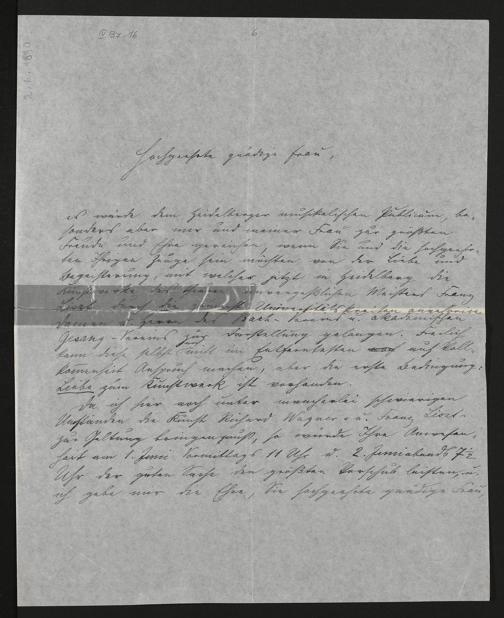 6
Hochgeehrte gnädige Frau,
es würde dem Heidelberger musikalischen Publicum, be-
sonders aber mir und meiner Frau zur größten
Freude und Ehre gereichen, wenn Sie und die hochgeehr-
ten Ihrigen Zeuge sein möchten von der Liebe und
Begeisterung, mit welcher jetzt in Heidelberg die
Kunstwerke des theuren unvergeßlichen Meisters Franz
Liszt durch die
Damen u. Herren des Bach-Vereins u. akademischen
Gesang-Vereins zur Darstellung gelangen. Freilich
kann diese jetzt nicht im Entferntesten auf Voll-
kommenheit Anspruch machen, aber die erste Bedingung:
Liebe zum Kunstwerk ist vorhanden.
Da ich hier noch unter mancherlei schwierigen
Umständen die Kunst Richard Wagner's u. Franz Liszt's
zur Geltung bringen muß, so würde Ihre Anwesen-
heit am 1. Juni Vormittags 11 Uhr u. 2. Juni abends 7½
Uhr der guten Sache den größten Vorschub leisten, u.
ich gebe mir die Ehre, Sie hochgeehrte gnädige Frau,